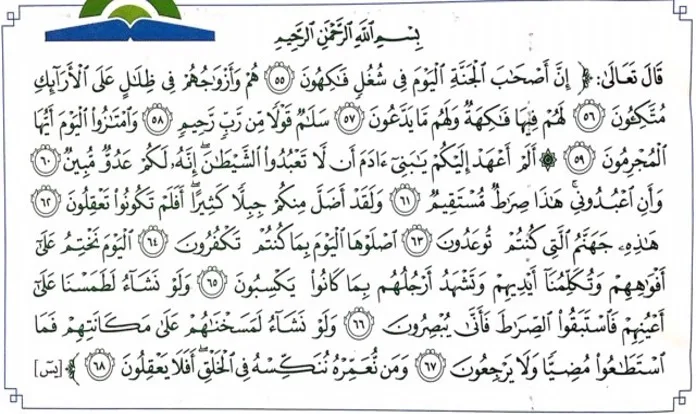 بِسْمِ اللَّهِ الرَّحْمَٰنِ الرَّحِيمِ
قَالَ تَعَالَىٰ: ﴿ إِنَّ أَصْحَٰبَ الْجَنَّةِ الْيَوْمَ فِى شُغُلٍ فَٰكِهُونَ ٥٥ هُمْ وَأَزْوَٰجُهُمْ فِى ظِلَٰلٍ عَلَى الْأَرَآئِكِ
مُتَّكِـُٔونَ ٥٦ لَهُمْ فِيهَا فَٰكِهَةٌ وَلَهُم مَّا يَدَّعُونَ ٥٧ سَلَٰمٌ قَوْلًا مِّن رَّبٍّ رَّحِيمٍ ٥٨ وَامْتَٰزُوا۟ الْيَوْمَ أَيُّهَا
الْمُجْرِمُونَ ٥٩ ۞ أَلَمْ أَعْهَدْ إِلَيْكُمْ يَٰبَنِىٓ ءَادَمَ أَن لَّا تَعْبُدُوا۟ الشَّيْطَٰنَ ۖ إِنَّهُۥ لَكُمْ عَدُوٌّ مُّبِينٌ ٦٠
وَأَنِ اعْبُدُونِى ۚ هَٰذَا صِرَٰطٌ مُّسْتَقِيمٌ ٦١ وَلَقَدْ أَضَلَّ مِنكُمْ جِبِلًّا كَثِيرًا ۖ أَفَلَمْ تَكُونُوا۟ تَعْقِلُونَ ٦٢
هَٰذِهِۦ جَهَنَّمُ الَّتِى كُنتُمْ تُوعَدُونَ ٦٣ اصْلَوْهَا الْيَوْمَ بِمَا كُنتُمْ تَكْفُرُونَ ٦٤ الْيَوْمَ نَخْتِمُ عَلَىٰٓ
أَفْوَٰهِهِمْ وَتُكَلِّمُنَآ أَيْدِيهِمْ وَتَشْهَدُ أَرْجُلُهُم بِمَا كَانُوا۟ يَكْسِبُونَ ٦٥ وَلَوْ نَشَآءُ لَطَمَسْنَا عَلَىٰٓ
أَعْيُنِهِمْ فَاسْتَبَقُوا۟ الصِّرَٰطَ فَأَنَّىٰ يُبْصِرُونَ ٦٦ وَلَوْ نَشَآءُ لَمَسَخْنَٰهُمْ عَلَىٰ مَكَانَتِهِمْ فَمَا
اسْتَطَٰعُوا۟ مُضِيًّا وَلَا يَرْجِعُونَ ٦٧ وَمَن نُّعَمِّرْهُ نُنَكِّسْهُ فِى الْخَلْقِ ۖ أَفَلَا يَعْقِلُونَ ٦٨ ﴾ [يسٓ]